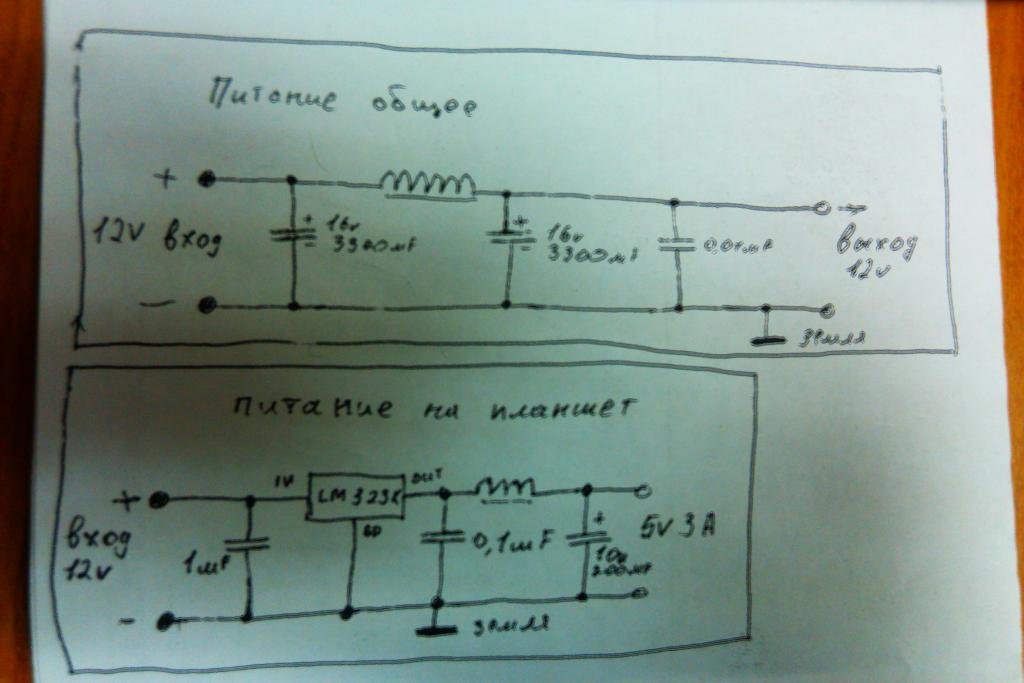 Питание общее
+
12V вход
-
+
16v
3300мF
+
16v
3300мF
0,01мF
выход
12v
земля
Питание на планшет
+
вход
12v
-
1мF
IN
LM323K
OUT
GD
0,1мF
+
10v
200мF
5V 3A
земля